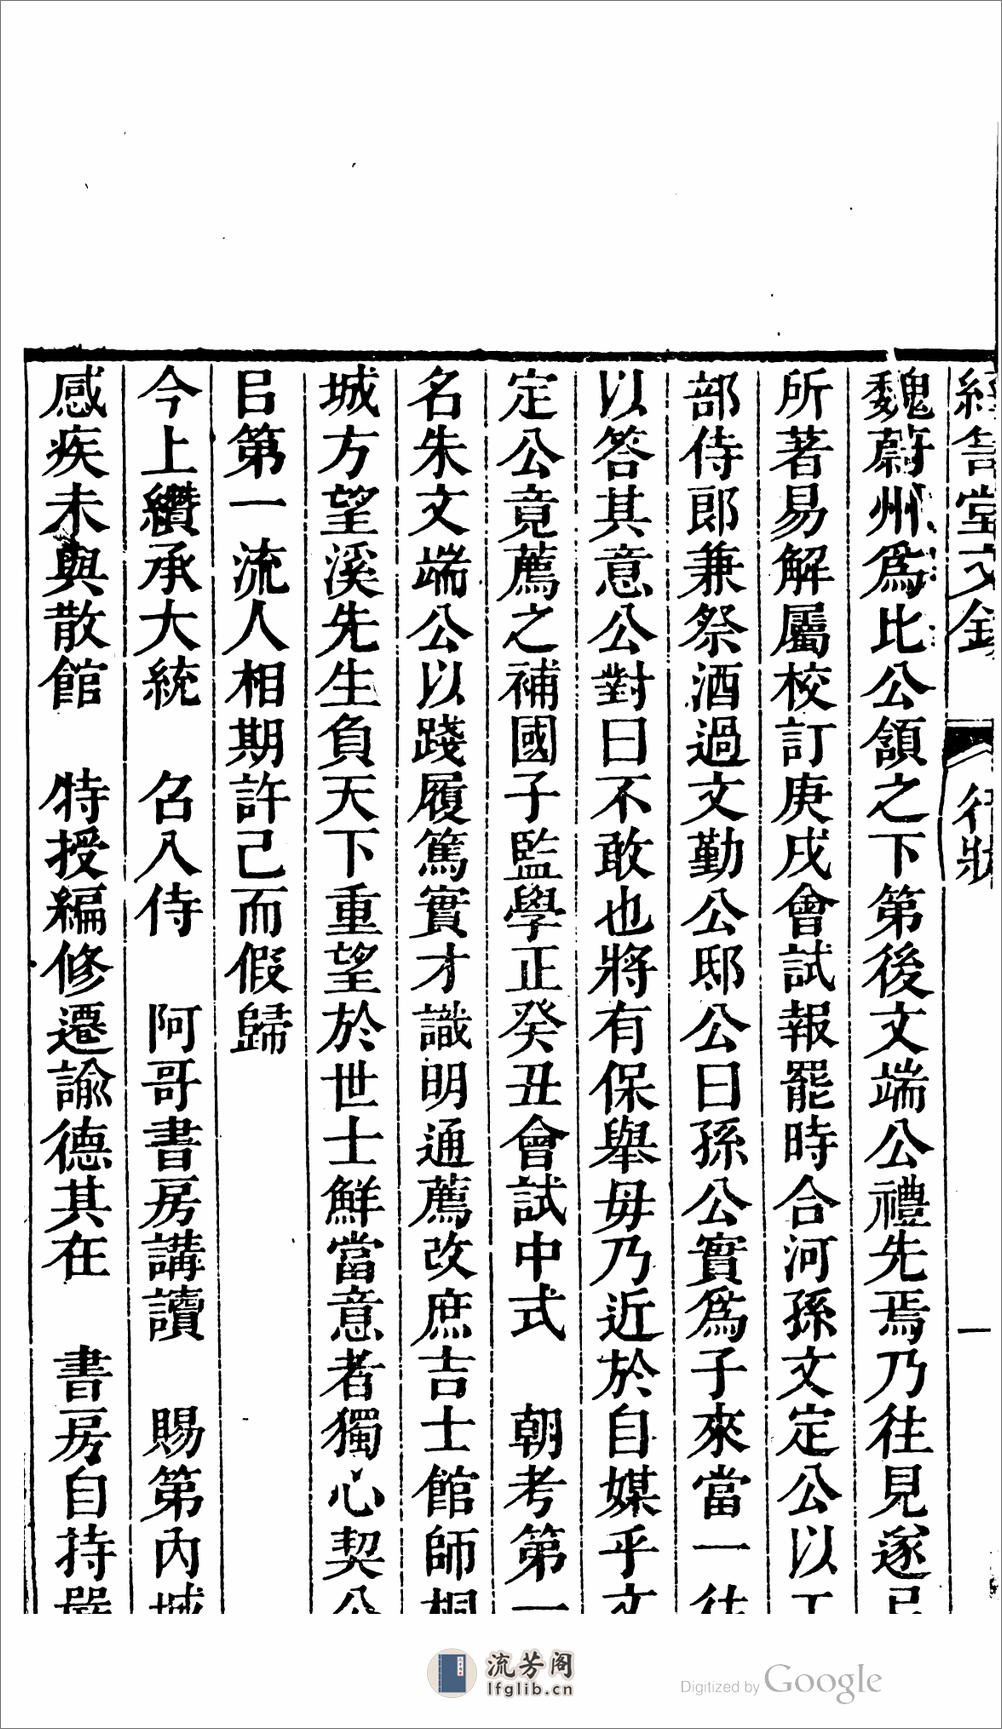 經笥堂文錄
行狀
一
魏蔚州爲比公頷之下第後文端公禮先焉乃往見遂
所著易解屬校訂庚戌會試報罷時合河孫文定公以工
部侍郎兼祭酒過文勤公邸公曰孫公實爲子來當一往
以答其意公對曰不敢也將有保舉毋乃近於自媒乎文
定公竟薦之補國子監學正癸丑會試中式　朝考第一
名朱文端公以踐履篤實才識明通薦改庶吉士館師桐
城方望溪先生負天下重望於世士鮮當意者獨心契公
目第一流人相期許已而假歸
今上纘承大統　召入侍　阿哥書房講讀　賜第內城
感疾未與散館　特授編修遷諭德其在　書房自持嚴
流芳阁
lfglib.cn
Digitized by Google